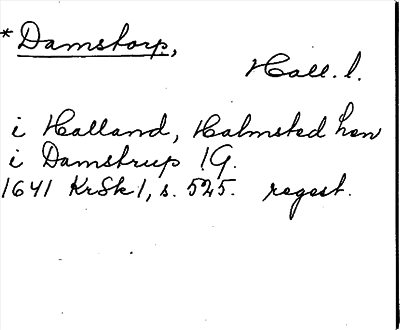 *Damstorp,
Hall. l.
i Halland, Halmsted hen
i Damstrup 1G.
1641 KrSk 1, s. 525. regest.